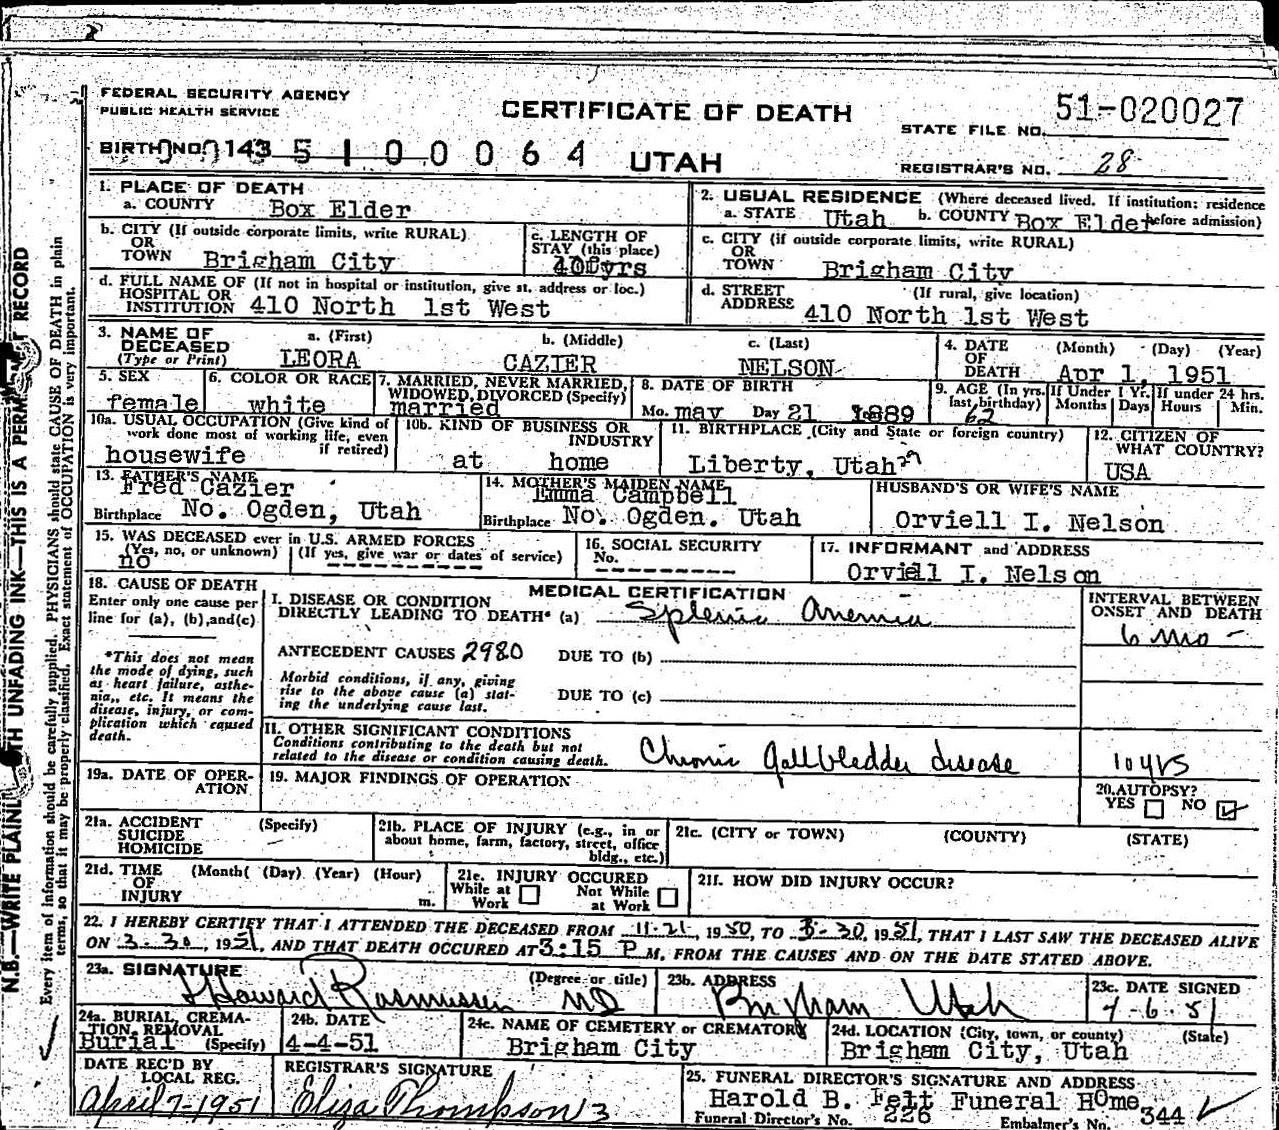 FEDERAL SECURITY AGENCY
PUBLIC HEALTH SERVICE
CERTIFICATE OF DEATH
STATE FILE NO. 51-020027
BIRTH NO. 143 5 1 0 0 0 6 4 UTAH
REGISTRAR'S NO. 28
1. PLACE OF DEATH
a. COUNTY Box Elder
2. USUAL RESIDENCE (Where deceased lived. If institution: residence before admission)
a. STATE Utah b. COUNTY Box Elder
b. CITY (If outside corporate limits, write RURAL)
OR
TOWN Brigham City
c. LENGTH OF
STAY (this place)
40 yrs
c. CITY (if outside corporate limits, write RURAL)
OR
TOWN Brigham City
d. FULL NAME OF (If not in hospital or institution, give st. address or loc.)
HOSPITAL OR
INSTITUTION 410 North 1st West
d. STREET (If rural, give location)
ADDRESS 410 North 1st West
3. NAME OF DECEASED
(Type or Print)
a. (First) b. (Middle) c. (Last)
LEORA CAZIER NELSON
4. DATE OF DEATH (Month) (Day) (Year)
Apr 1, 1951
5. SEX
female
6. COLOR OR RACE
white
7. MARRIED, NEVER MARRIED,
WIDOWED, DIVORCED (Specify)
married
8. DATE OF BIRTH
Mo. may Day 21 1889
9. AGE (In yrs. last birthday)
62
If Under 1 Yr. Months Days
If under 24 hrs. Hours Min.
10a. USUAL OCCUPATION (Give kind of
work done most of working life, even
if retired)
housewife
10b. KIND OF BUSINESS OR
INDUSTRY
at home
11. BIRTHPLACE (City and State or foreign country)
Liberty, Utah
12. CITIZEN OF
WHAT COUNTRY?
USA
13. FATHER'S NAME
Fred Cazier
Birthplace No. Ogden, Utah
14. MOTHER'S MAIDEN NAME
Emma Campbell
Birthplace No. Ogden. Utah
HUSBAND'S OR WIFE'S NAME
Orviell I. Nelson
15. WAS DECEASED ever in U.S. ARMED FORCES
(Yes, no, or unknown) (If yes, give war or dates of service)
no ---------
16. SOCIAL SECURITY
No. ---------
17. INFORMANT and ADDRESS
Orviell I. Nelson
18. CAUSE OF DEATH
Enter only one cause per
line for (a), (b), and (c)
*This does not mean
the mode of dying, such
as heart failure, asthe-
nia,, etc. It means the
disease, injury, or com-
plication which caused
death.
MEDICAL CERTIFICATION
I. DISEASE OR CONDITION
DIRECTLY LEADING TO DEATH* (a) Splenic Anemia
INTERVAL BETWEEN
ONSET AND DEATH
6 mo -
ANTECEDENT CAUSES 2980 DUE TO (b)
Morbid conditions, if any, giving
rise to the above cause (a) stat-
ing the underlying cause last.
DUE TO (c)
II. OTHER SIGNIFICANT CONDITIONS
Conditions contributing to the death but not
related to the disease or condition causing death.
Chronic Gallbladder disease 10 yrs
19a. DATE OF OPER-
ATION
19. MAJOR FINDINGS OF OPERATION
20. AUTOPSY?
YES NO
21a. ACCIDENT (Specify)
SUICIDE
HOMICIDE
21b. PLACE OF INJURY (e.g., in or
about home, farm, factory, street, office
bldg., etc.)
21c. (CITY or TOWN) (COUNTY) (STATE)
21d. TIME (Month( (Day) (Year) (Hour)
OF
INJURY m.
21e. INJURY OCCURED
While at Work Not While at Work
21f. HOW DID INJURY OCCUR?
22. I HEREBY CERTIFY THAT I ATTENDED THE DECEASED FROM 11-21, 1950, TO 3-30, 1951, THAT I LAST SAW THE DECEASED ALIVE
ON 3-30, 1951, AND THAT DEATH OCCURED AT 3:15 P M, FROM THE CAUSES AND ON THE DATE STATED ABOVE.
23a. SIGNATURE (Degree or title)
Howard Rasmussen MD
23b. ADDRESS
Brigham Utah
23c. DATE SIGNED
4-6-51
24a. BURIAL, CREMA-
TION, REMOVAL
(Specify)
Burial
24b. DATE
4-4-51
24c. NAME OF CEMETERY or CREMATORY
Brigham City
24d. LOCATION (City, town, or county) (State)
Brigham City, Utah
DATE REC'D BY
LOCAL REG.
April 7-1951
REGISTRAR'S SIGNATURE
Eliza Thompson
25. FUNERAL DIRECTOR'S SIGNATURE AND ADDRESS
Harold B. Felt Funeral Home
Funeral Director's No. 226 Embalmer's No. 344
N.B.—WRITE PLAINLY WITH UNFADING INK—THIS IS A PERMANENT RECORD
Every item of information should be carefully supplied. PHYSICIANS should state CAUSE OF DEATH in plain
terms, so that it may be properly classified. Exact statement of OCCUPATION is very important.